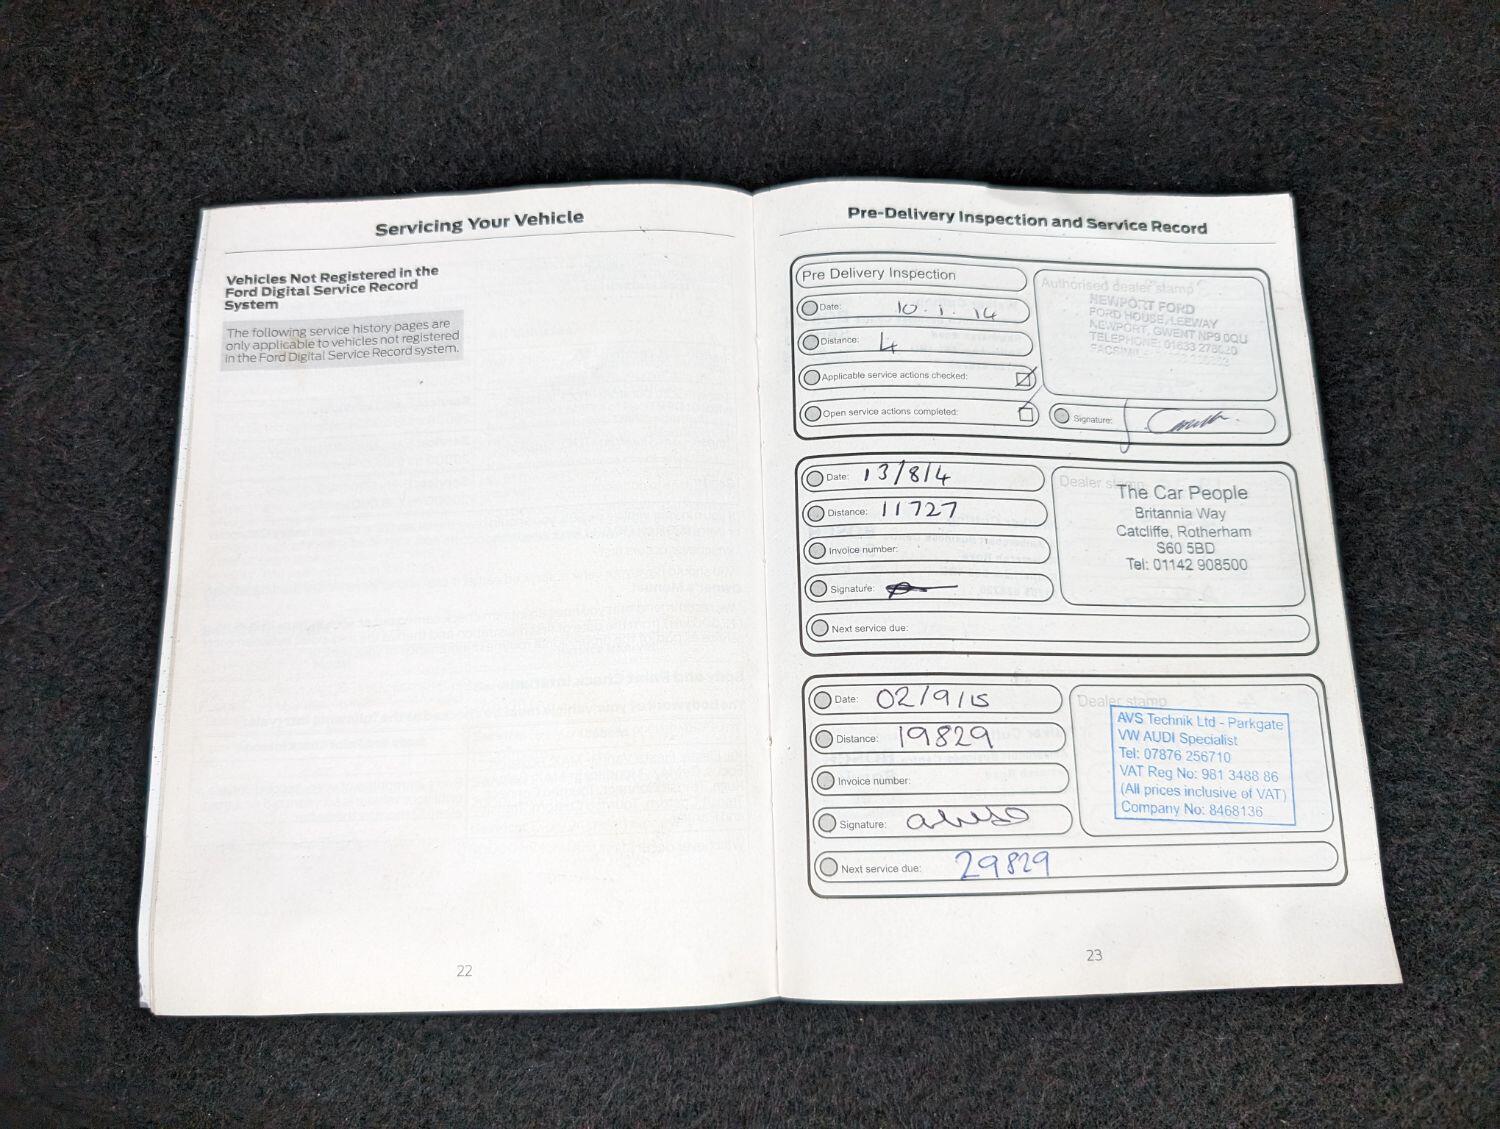 Servicing Your Vehicle
Vehicles Not Registered in the
Ford Digital Service Record
System
The following service history pages are
only applicable to vehicles not registered
in the Ford Digital Service Record system.
22
Pre-Delivery Inspection and Service Record
Pre Delivery Inspection
Date: 10.1.14
Distance: 4
Applicable service actions checked:
Open service actions completed:
Authorised dealer stamp
NEWPORT FORD
FORD HOUSE, LEEWAY
NEWPORT, GWENT NP9 0QU
TELEPHONE: 01633 278020
Signature:
Date: 13/8/4
Distance: 11727
Invoice number:
Signature:
Next service due:
Dealer stamp
The Car People
Britannia Way
Catcliffe, Rotherham
S60 5BD
Tel: 01142 908500
Date: 02/9/15
Distance: 19829
Invoice number:
Signature:
Next service due: 29829
Dealer stamp
AVS Technik Ltd - Parkgate
VW AUDI Specialist
Tel: 07876 256710
VAT Reg No: 981 3488 86
(All prices inclusive of VAT)
Company No: 8468136
23